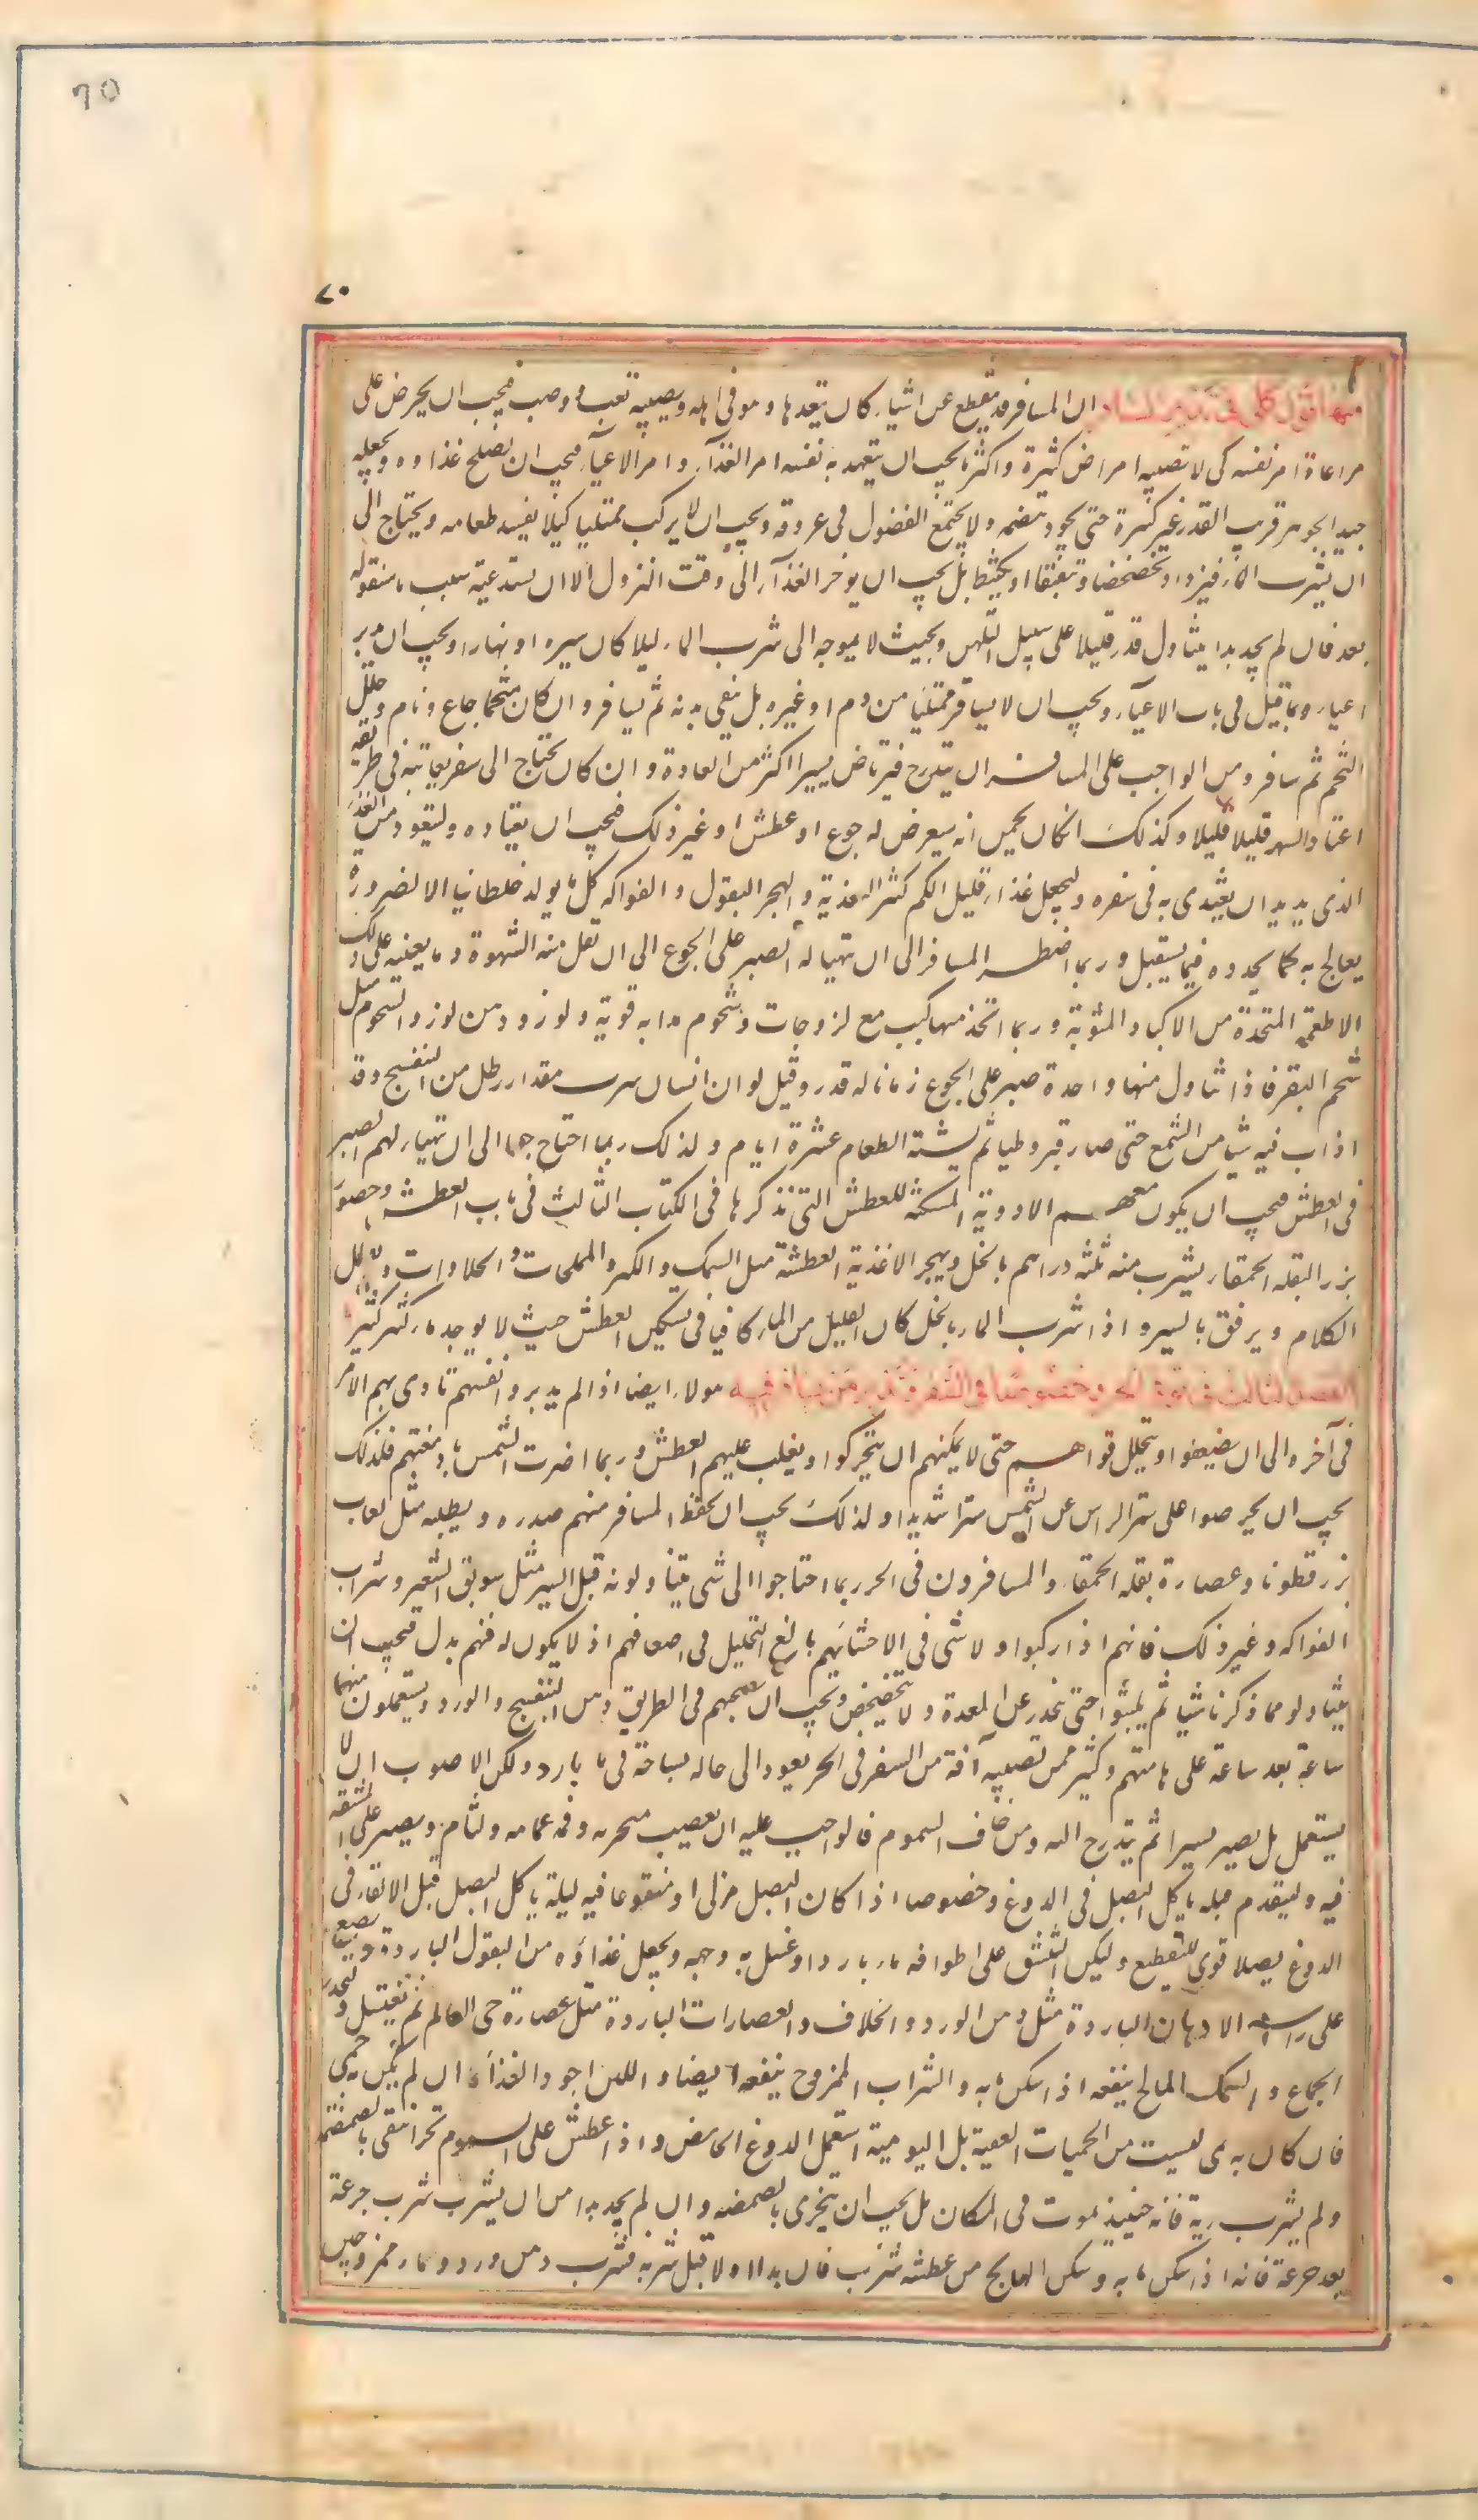 70
٧٠
منها قول كلى فى تدبير المسافر ان المسافر قد ينقطع عن اشياء كان يتعهدها وهو فى اهله ويصيبه تعب ووصب فيجب ان يحرص على
مراعاة امر نفسه كى لا تصيبه امراض كثيرة واكثر ما يجب ان يتعهد به نفسه امر الغذآء وامر الاعيآء فيجب ان يصلح غذاوه ويجعله
جيد الجوهر قريب القدر غير كثيرة حتى يجود هضمه ولا يجتمع الفضول فى عروقه ويجب ان لا يركب ممتليا كيلا يفسد طعامه ويحتاج الى
ان يشرب الماء فيزداد تخضخضا وتبقبقا او يتثبط بل يجب ان يوخر الغذآء الى وقت النزول الا ان يستدعيه سبب ما سنقوله
بعد فان لم يجد بدا يتناول قدر قليلا على سبيل التلهى وبحيث لا يحوجه الى شرب الماء ليلا كان سيره او نهارا ويجب ان يدبر
اعياوه بما قيل فى باب الاعيآء ويجب ان لا يسافر ممتليا من دم او غيره بل ينقى بدنه ثم يسافر وان كان متخما جاع ونام وحلل
التخم ثم سافر ومن الواجب على المسافر ان يتدرج فيرتاض يسيرا اكثر من العادة وان كان يحتاج الى سهر يعانيه فى طريقه
اعتاد السهر قليلا قليلا وكذلك ان كان يخمن انه سيعرض له جوع او عطش او غير ذلك فيجب ان يعتاده وليتعود من الغذآء
الذى يريد ان يغتذى به فى سفره وليجعل غذاءه قليل الكم كثير التغذية وليهجر البقول والفواكه كل ما يولد خلطا نيا الا لضرورة
يعالج به كما يحدوه فيما يستقبل وربما اضطر المسافر الى ان تهيا له الصبر على الجوع الى ان تقل منه الشهوة ومما يعينه على ذلك
الاطعمة المتخذة من الاكباد المشوية وربما اتخذ منها كبب مع لزوجات وشحوم مذابة قوية ولوز ودهن لوز والشحوم مثل
شحم البقر فاذا تناول منها واحدة صبر على الجوع زمانا له قدر وقيل لو ان انسان شرب مقدار رطل من البنفسج وقد
اذاب فيه شيا من الشمع حتى صار قيروطيا ثم لم يشته الطعام عشرة ايام ولذلك ربما احتاج الى ان تهيا لهم الصبر
فى العطش فيجب ان يكون معهم الادوية المسكنة للعطش التى نذكرها فى الكتاب الثالث فى باب العطش وخصوصا
بزر البقلة الحمقاء يشرب منه ثلثة دراهم بالخل ويهجر الاغذية المعطشة مثل السمك والكبر والمملحات والحلاوات ويقل
الكلام ويرفق بالسير واذا شرب الماء بالخل كان القليل من الماء كافيا فى تسكين العطش حيث لا يوجد ماء كثير
الفصل الثالث فى توقى الحر وخصوصا فى السفر وتدبير من يسافر فيه هولاء ايضا اذا لم يدبروا انفسهم تادى بهم الامر
فى آخره الى ان يضعفوا وتتحلل قواهم حتى لا يمكنهم ان يتحركوا ويغلب عليهم العطش وربما اضرت الشمس بادمغتهم فلذلك
يجب ان يحرصوا على ستر الراس عن الشمس سترا شديدا ولذلك يجب ان يحفظ المسافر منهم صدره ويطليه بمثل لعاب
بزر قطونا وعصارة بقلة الحمقاء والمسافرون فى الحر ربما احتاجوا الى شى يتناولونه قبل السير مثل سويق الشعير وشراب
الفواكه وغير ذلك فانهم اذا ركبوا ولا شى فى الاحشائهم بالغ التحليل فى اضعافهم اذ لا يكون له فيهم بدل فيجب ان
يتناولوا مما ذكرنا شيا ثم يلبثوا حتى ينحدر عن المعدة ولا يتخضخض ويجب ان يصحبهم فى الطريق دهن البنفسج والورد يستعملون منهما
ساعة بعد ساعة على هامتهم وكثير ممن تصيبه آفة من السفر فى الحر يعود الى حاله بسباحة فى ماء بارد ولكن الاصوب ان لا
يستعجل بل يصير يسيرا ثم يتدرج اليه ومن خاف السموم فالواجب عليه ان يعصب منخريه وفمه بعمامه ولثام ويصبر على المشقة
فيه وليقدم قبله باكل البصل فى الدوغ وخصوصا اذا كان البصل مربى او منقوعا فيه ليلة ياكل البصل قبل الالقاء فى
الدوغ بصلا قوى التقطيع وليكن التنشق على اطرافه ماء باردا وغسل به وجهه ويجعل غذاؤه من البقول الباردة ويضع
على راسه الادهان الباردة مثل دهن الورد والخلاف والعصارات الباردة مثل عصارة حى العالم ثم يغتسل وليحذر
الجماع والسمك المالح ينفعه اذا سكن ما به والشراب الممزوج ينفعه ايضا واللبن اجود الغذآء ان لم يكن به حمى
فان كان به حمى ليست من الحميات العفنية بل اليومية استعمل الدوغ الحامض واذا عطش على السموم تجزا بالمضمضة
ولم يشرب ريه فانه حينيذ يموت فى المكان بل يجب ان يتجزى بالمضمضه وان لم يجد بدا من ان يشرب شرب جرعة
بعد جرعة فانه اذا سكن ما به وسكن الهايج من عطشه شرب فان بدا اولا قبل شربه فشرب دهن ورد وماء ممزوجين